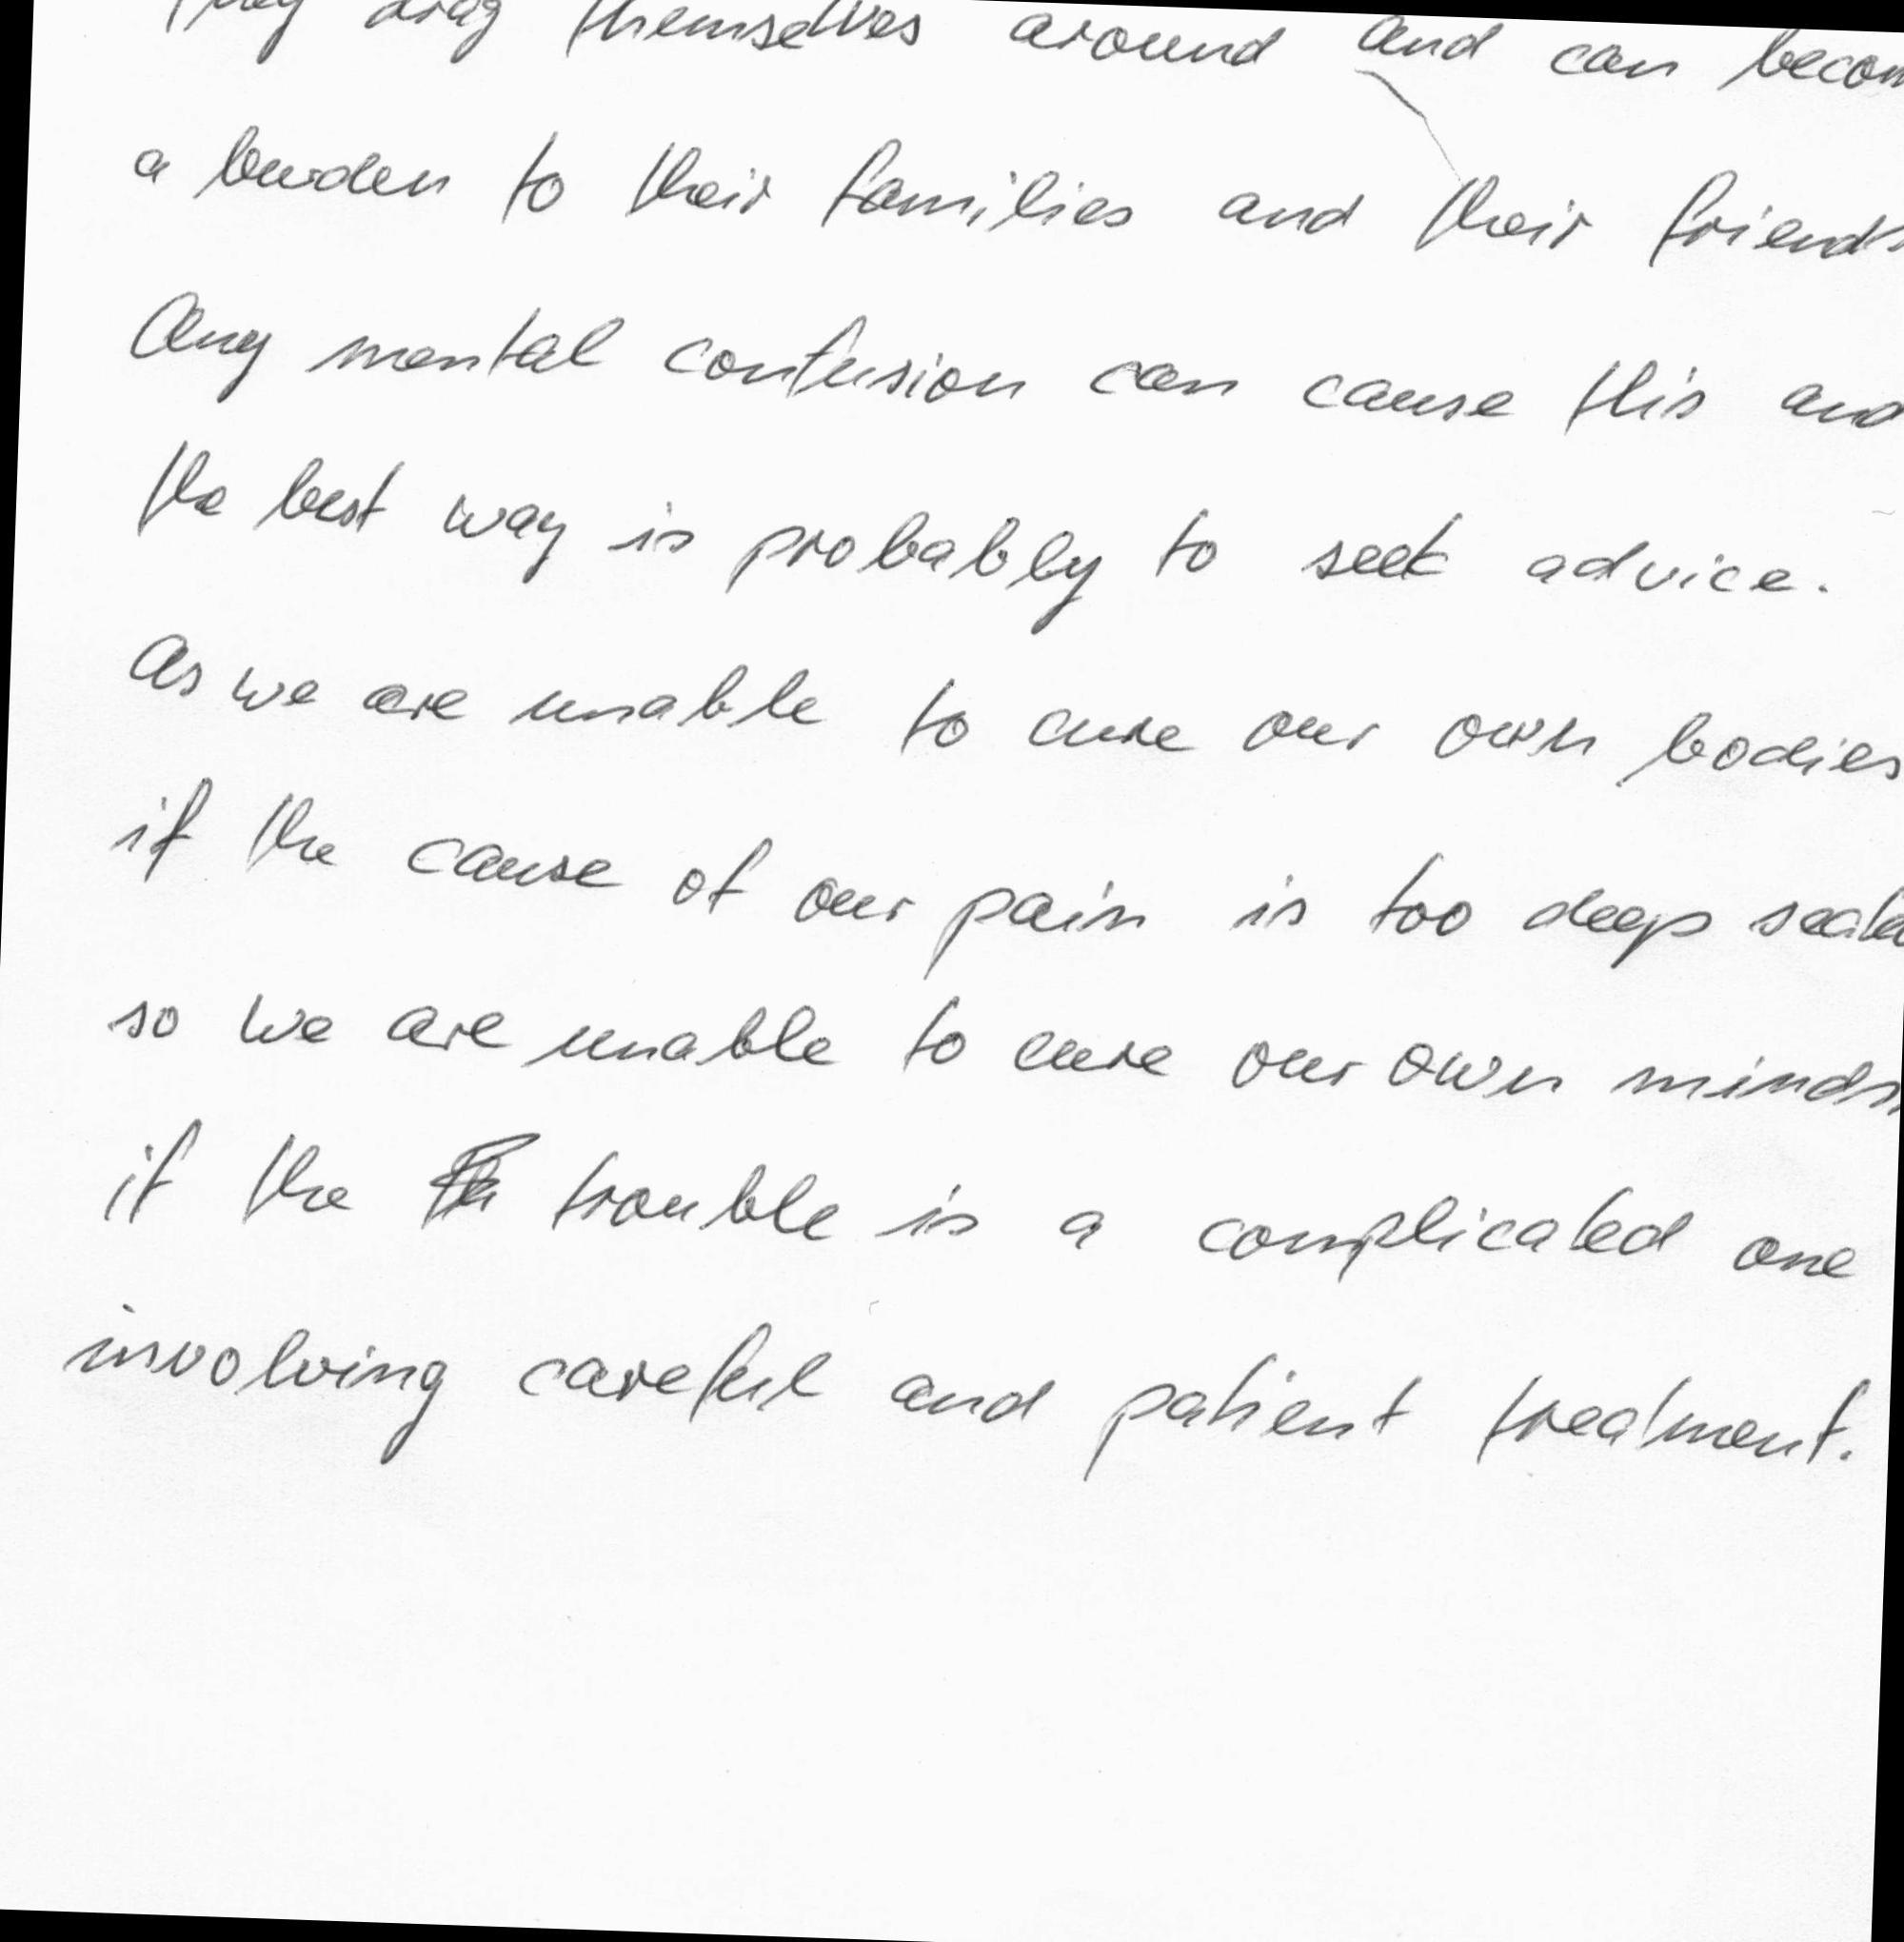 They drag themselves around and can becom
a burden to their families and their friends
Any mental confusion can cause this and
the best way is probably to seek advice.
As we are unable to cure our own bodies
if the cause of our pain is too deep seate
so we are unable to cure our own minds,
if the trouble is a complicated one
involving careful and patient treatment.